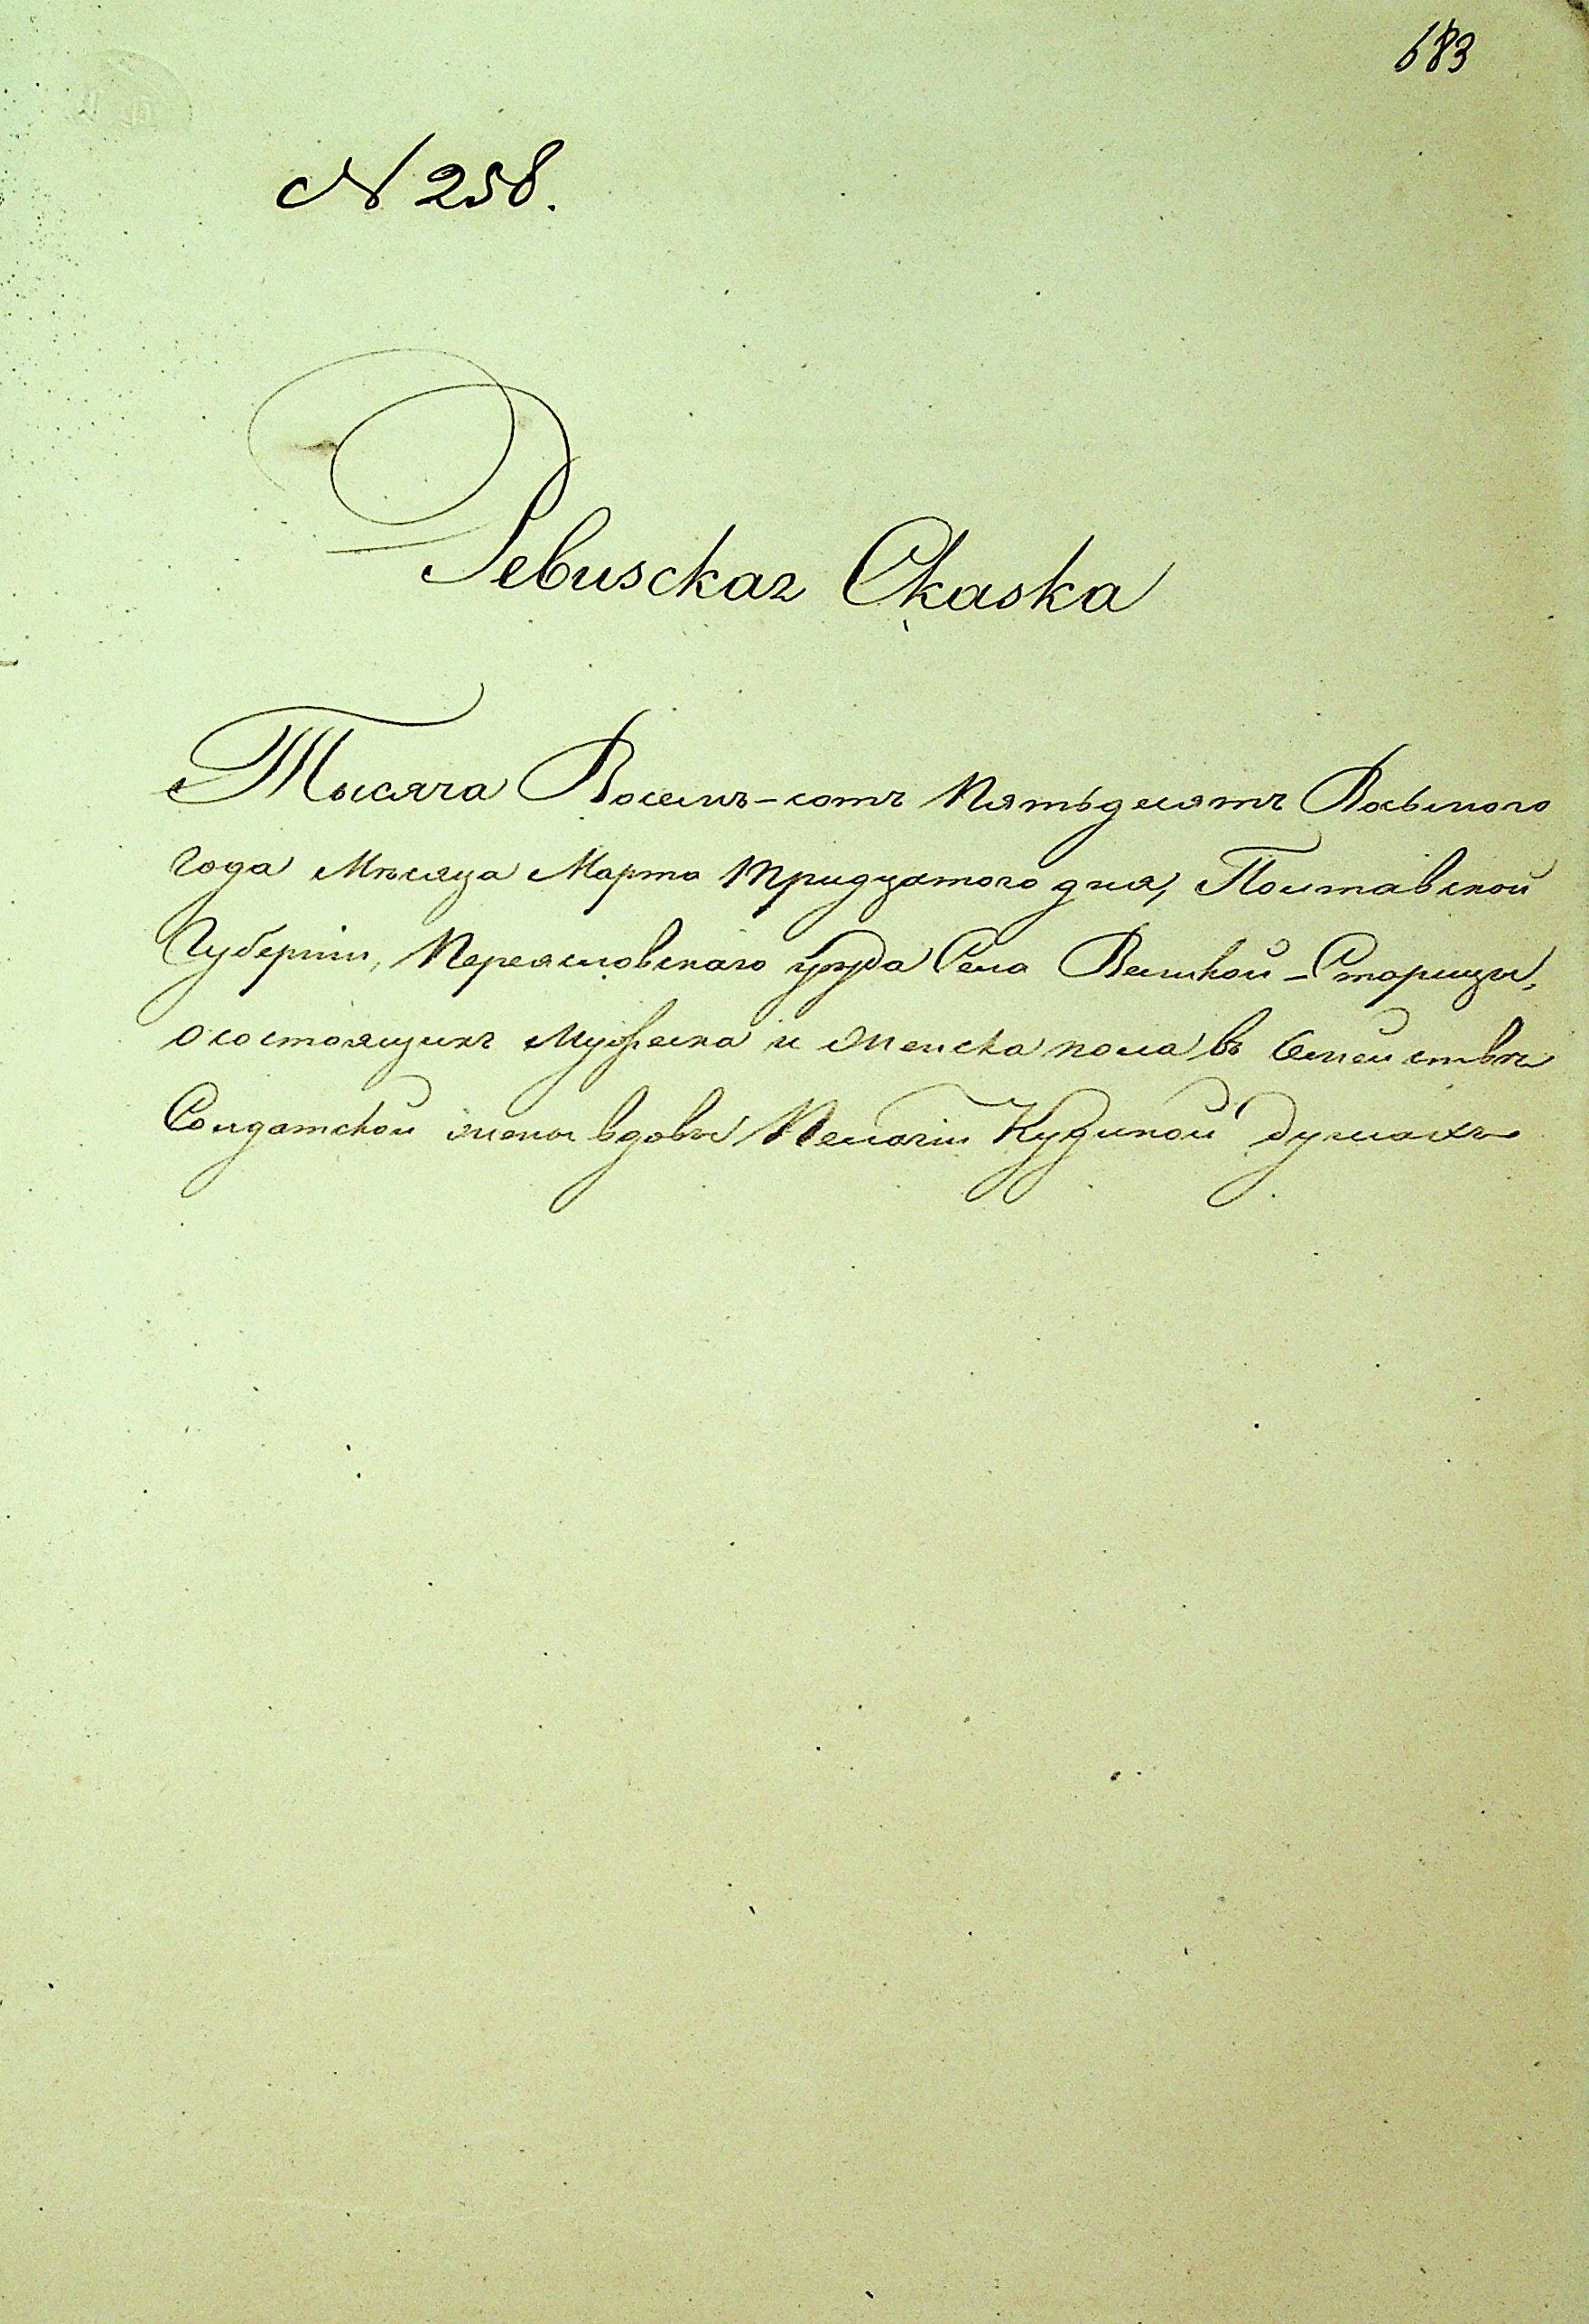 683
№ 258.
Ревизская Сказка
Тысяча Восемъ-сотъ Пятьдесятъ Восьмого
года Мѣсяца Марта Тридцатого дня, Полтавской
Губерніи, Переясловскаго уѣзда Села Великой-Старицы,
о состоящихъ Мужеска и Женска пола въ Семействѣ
Солдатской жены вдовы Пелагіи Кудиной душахъ